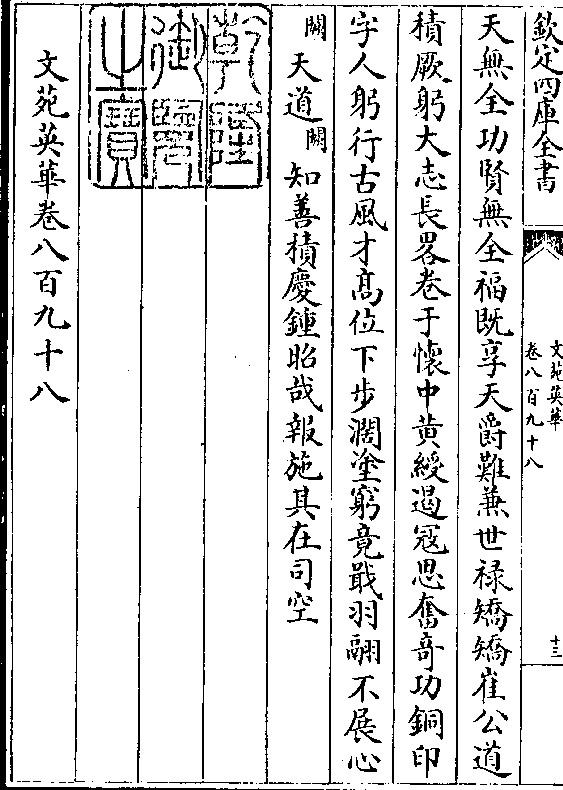 欽定四庫全書
文苑英華
卷八百九十八
十三
天無全功賢無全福既享天爵難兼世禄矯矯崔公道
積厥躬大志長畧卷于懷中黄綬遏冦思奮竒功銅印
字人躬行古風才髙位下步濶塗窮竟戢羽翮不展心
闕天道闕知善積慶鍾昭哉報施其在司空
乾隆御覽之寶
文苑英華卷八百九十八